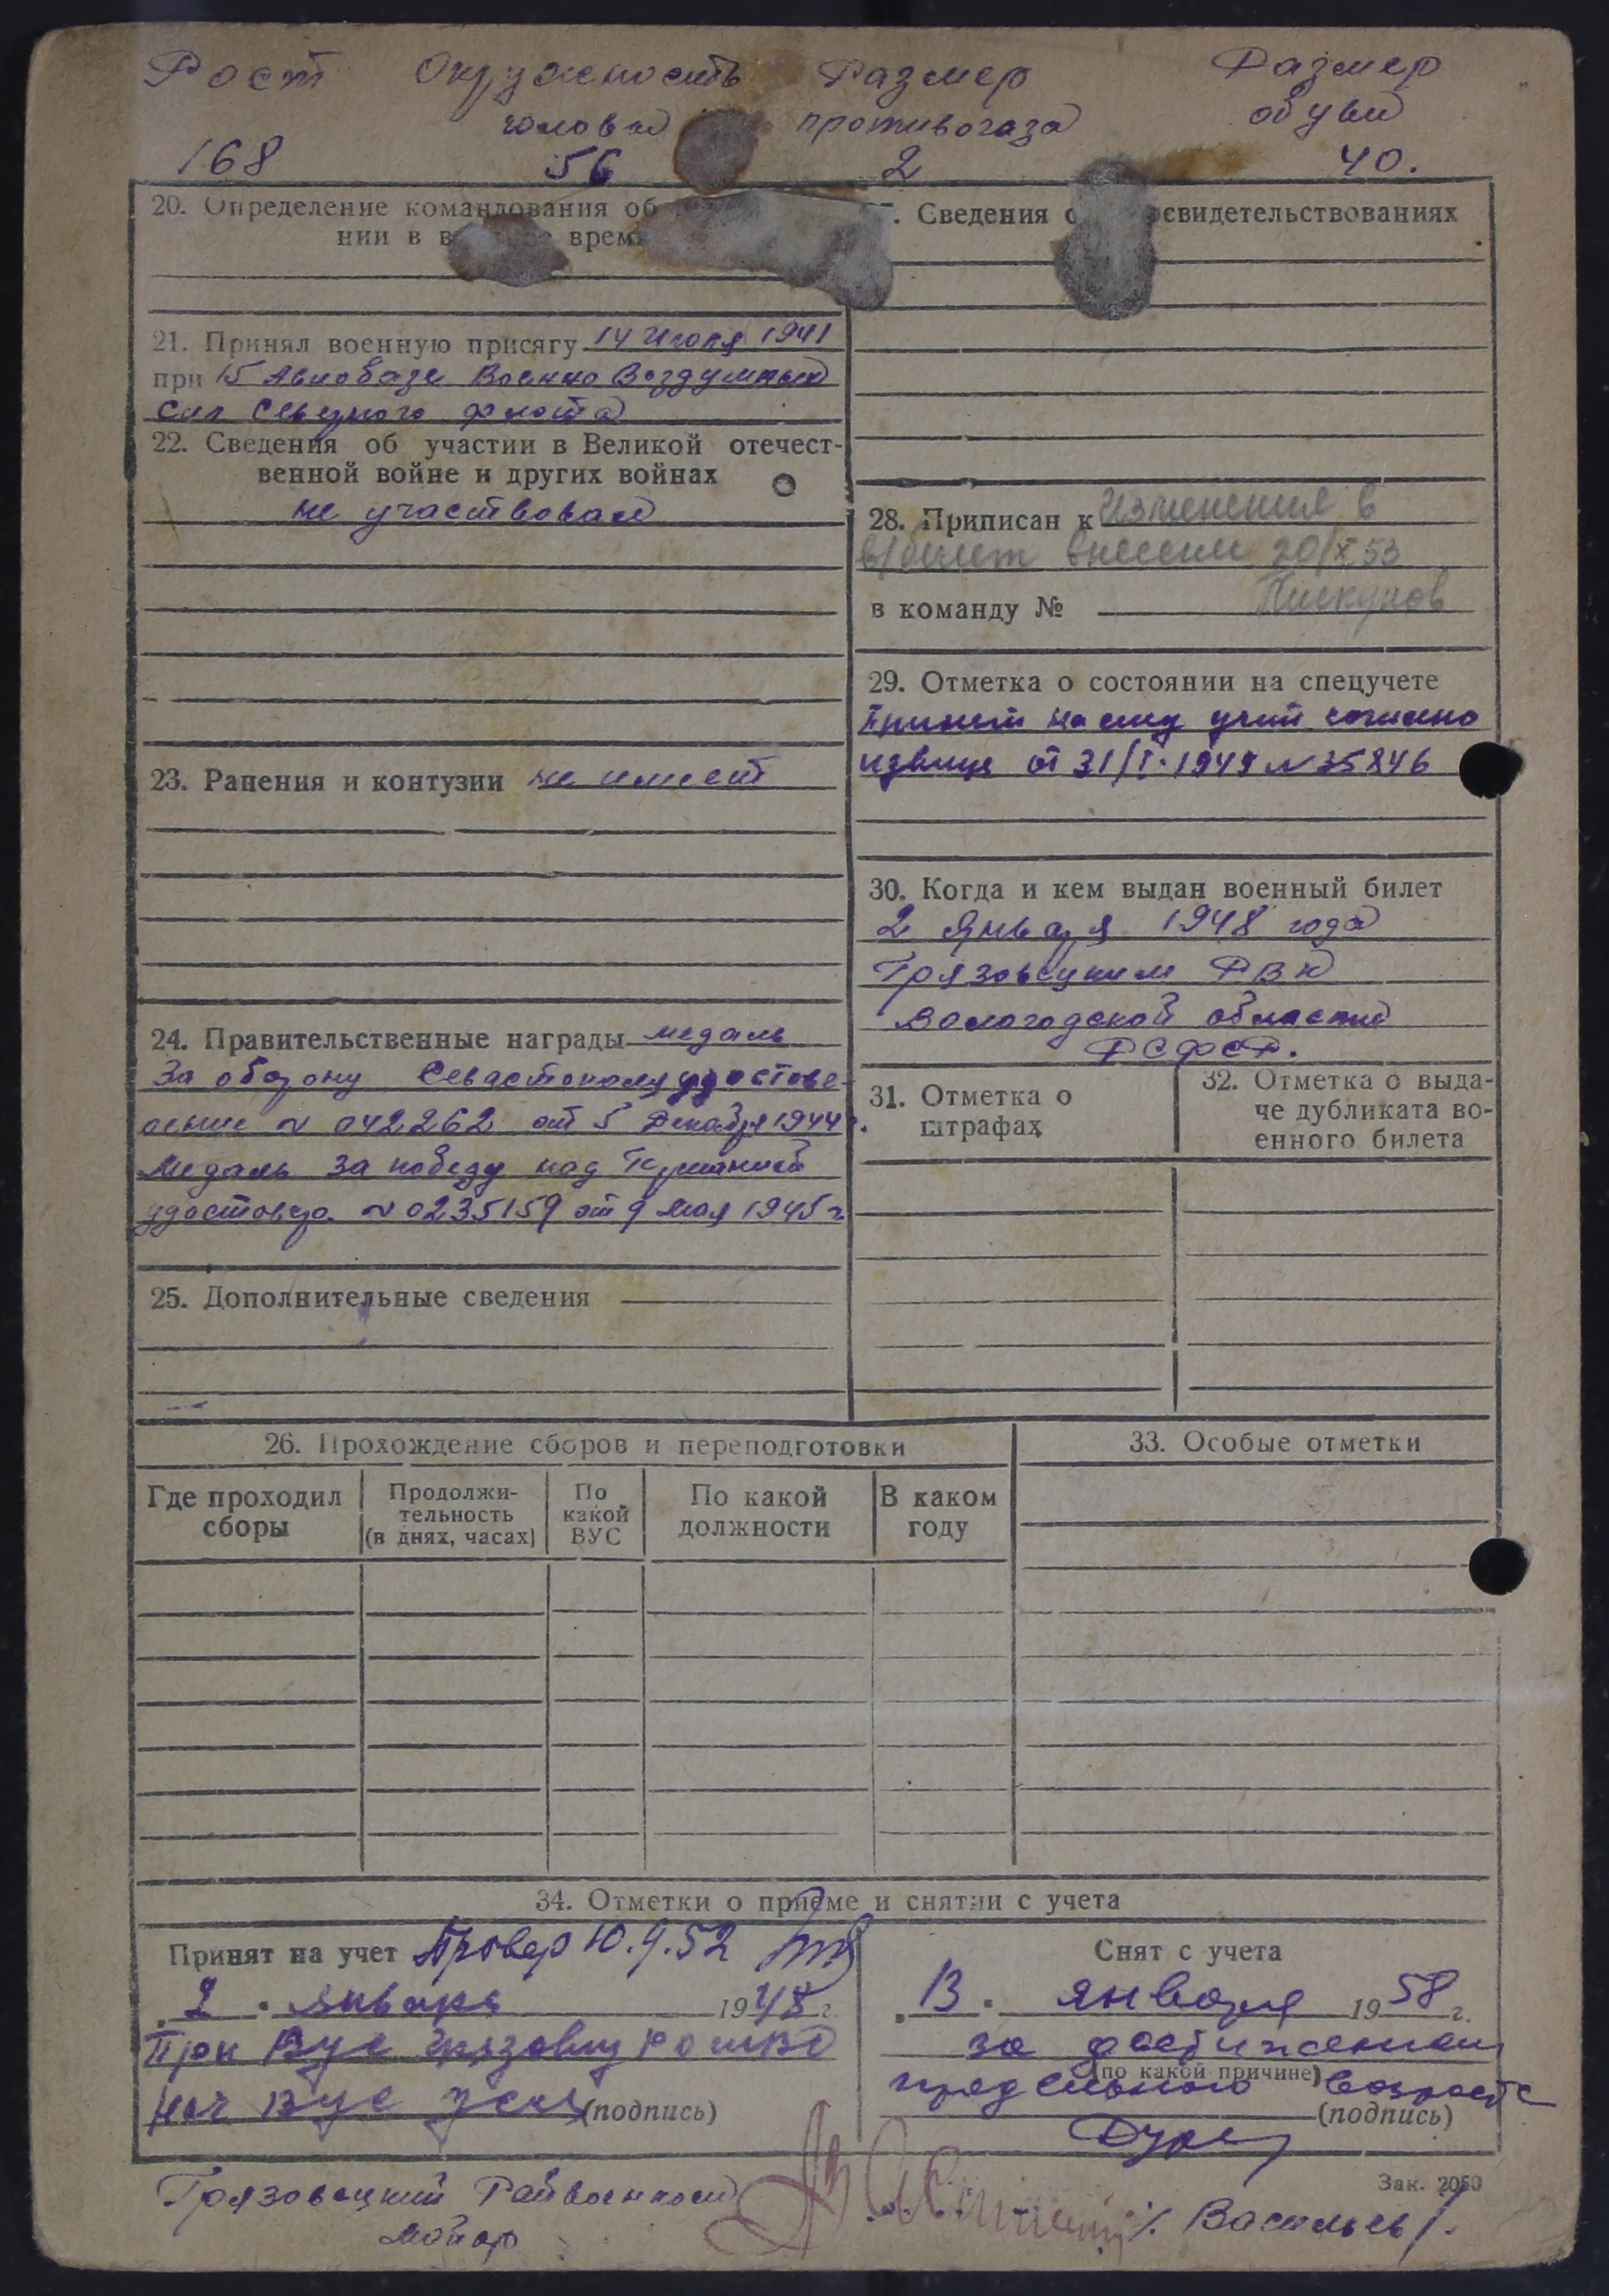 Рост Окружность Размер Размер
головы противогаза обуви
168 56 2 40.
20. Определение командования об
нии в время
Сведения о освидетельствованиях
21. Принял военную присягу 14 Июля 1941
при 15 Авиобазе Военно Воздушных
Сил Северного флота
22. Сведения об участии в Великой отечест-
венной войне и других войнах
не участвовал
23. Ранения и контузии не имеет
24. Правительственные награды медаль
За оборону Севастополя удостове-
рение № 042262 от 5 Декабря 1944 г.
Медаль За победу над Германией
удостовер. № 0235159 от 9 Мая 1945 г.
25. Дополнительные сведения
28. Приписан к Изменения в
в/билет внесены 20/X 53
в команду № Пискунов
29. Отметка о состоянии на спецучете
Принят на спец учет согласно
извещ от 31/I·1949 № 35846
30. Когда и кем выдан военный билет
2 Января 1948 года
Грязовецким РВК
Вологодской области
РСФСР.
31. Отметка о
штрафах
32. Отметка о выда-
че дубликата во-
енного билета
26. Прохождение сборов и переподготовки
Где проходил
сборы
Продолжи-
тельность
(в днях, часах)
По
какой
ВУС
По какой
должности
В каком
году
33. Особые отметки
34. Отметки о приёме и снятии с учета
Принят на учет Провер 10.9.52
2 Января 1948 г.
При ВУС Грязовец
Нач ВУС (подпись)
Снят с учета
13 января 1958 г.
за достижением
(по какой причине)
предельного возраста
(подпись)
Зак. 2050
Грязовецкий Райвоенком
Майор /Васильев/.